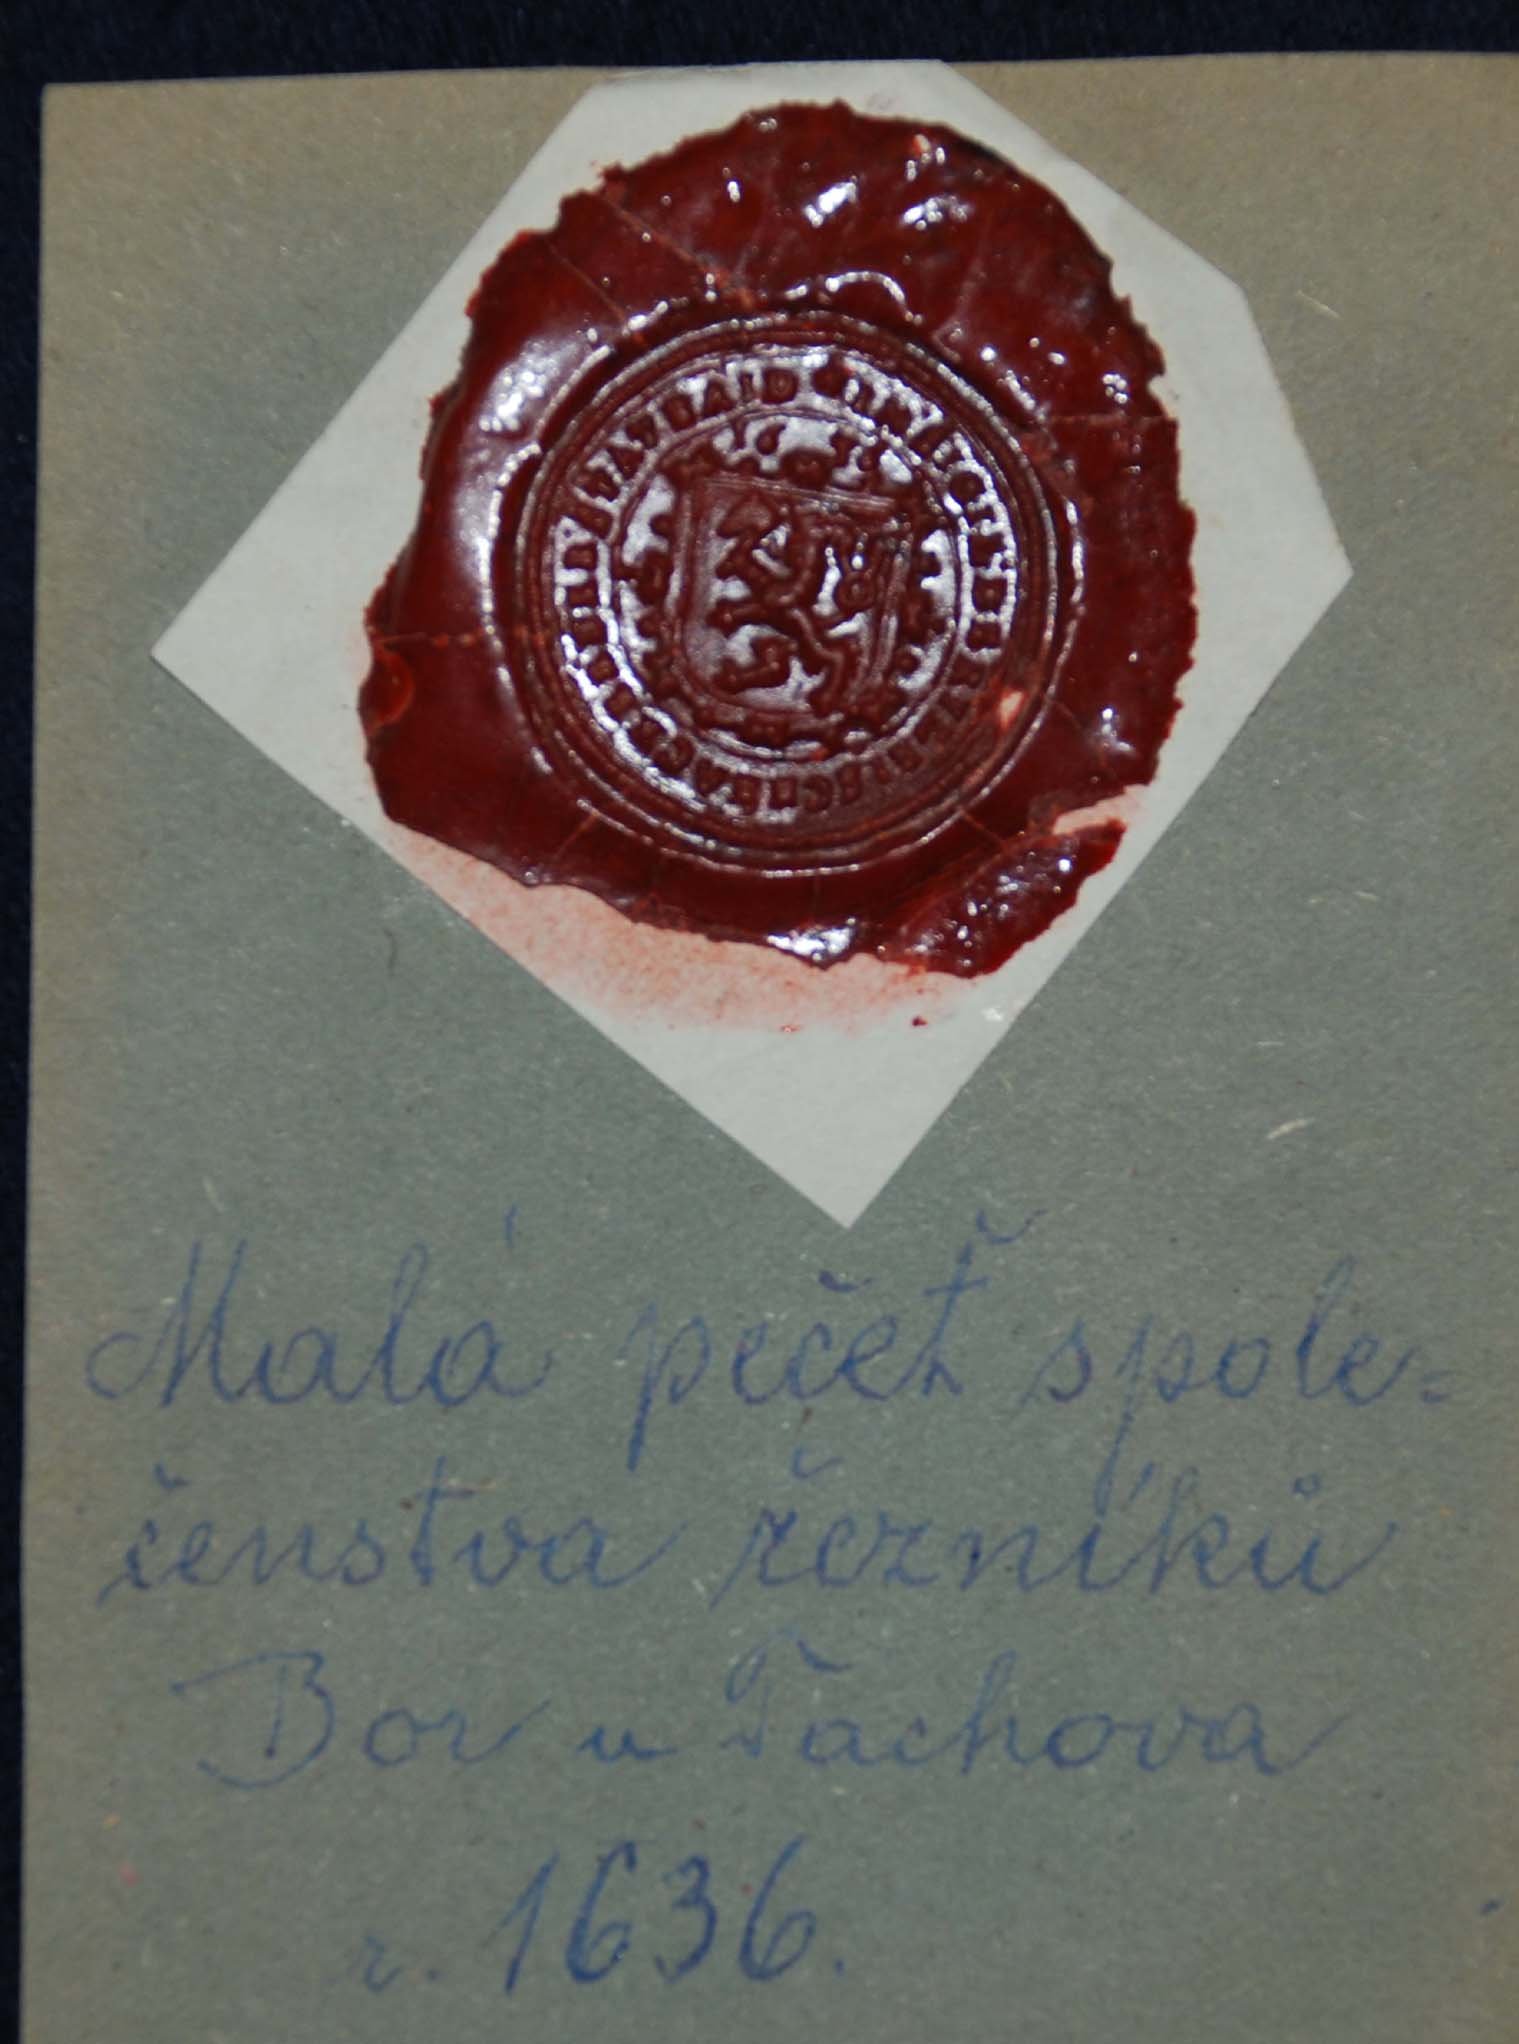 16 39
Malá pečeť spole=
čenstva řezníků
Bor u Tachova
r. 1636.